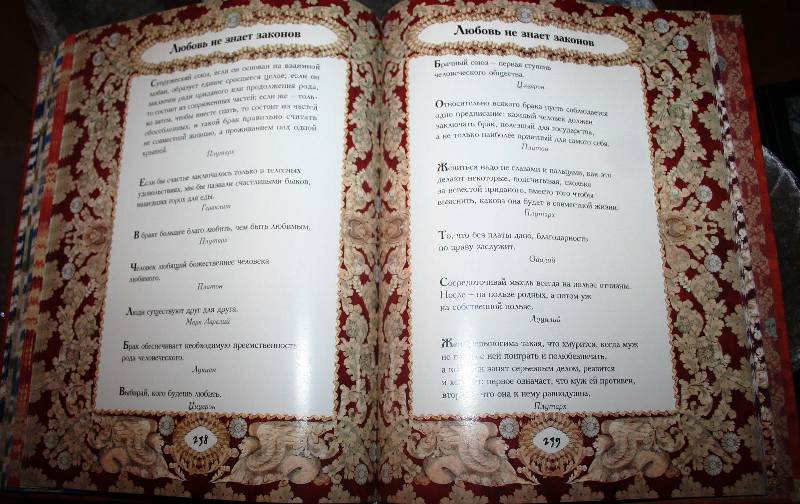 Любовь не знает законов
Супружеский союз, если он основан на взаимной
любви, образует единое сросшееся целое; если он
заключен ради приданого или продолжения рода,
то состоит из сопряженных частей; если же – толь-
ко затем, чтобы вместе спать, то состоит из частей
обособленных, и такой брак правильно считать
не совместной жизнью, а проживанием под одной
крышей.
Плутарх
Если бы счастье заключалось только в телесных
удовольствиях, мы бы назвали счастливыми быков,
нашедших горох для еды.
Гераклит
В браке большее благо любить, чем быть любимым.
Плутарх
Человек любящий божественнее человека
любимого.
Платон
Люди существуют друг для друга.
Марк Аврелий
Брак обеспечивает необходимую преемственность
рода человеческого.
Лукиан
Выбирай, кого будешь любить.
Цицерон
238
Любовь не знает законов
Брачный союз – первая ступень
человеческого общества.
Цицерон
Относительно всякого брака пусть соблюдается
одно предписание: каждый человек должен
заключать брак, полезный для государства,
а не только наиболее приятный для самого себя.
Платон
Жениться надо не глазами и пальцами, как это
делают некоторые, подсчитывая, сколько
за невестой приданого, вместо того чтобы
выяснить, какова она будет в совместной жизни.
Плутарх
То, что без платы дано, благодарность
по праву заслужит.
Овидий
Сосредоточивай мысль всегда на пользе отчизны.
После – на пользе родных, а потом уж
на собственной пользе.
Луцилий
Жена невыносима такая, что хмурится, когда муж
не прочь с ней поиграть и полюбезничать,
а когда он занят серьезным делом, резвится
и хохочет: первое означает, что муж ей противен,
второе – что она к нему равнодушна.
Плутарх
239